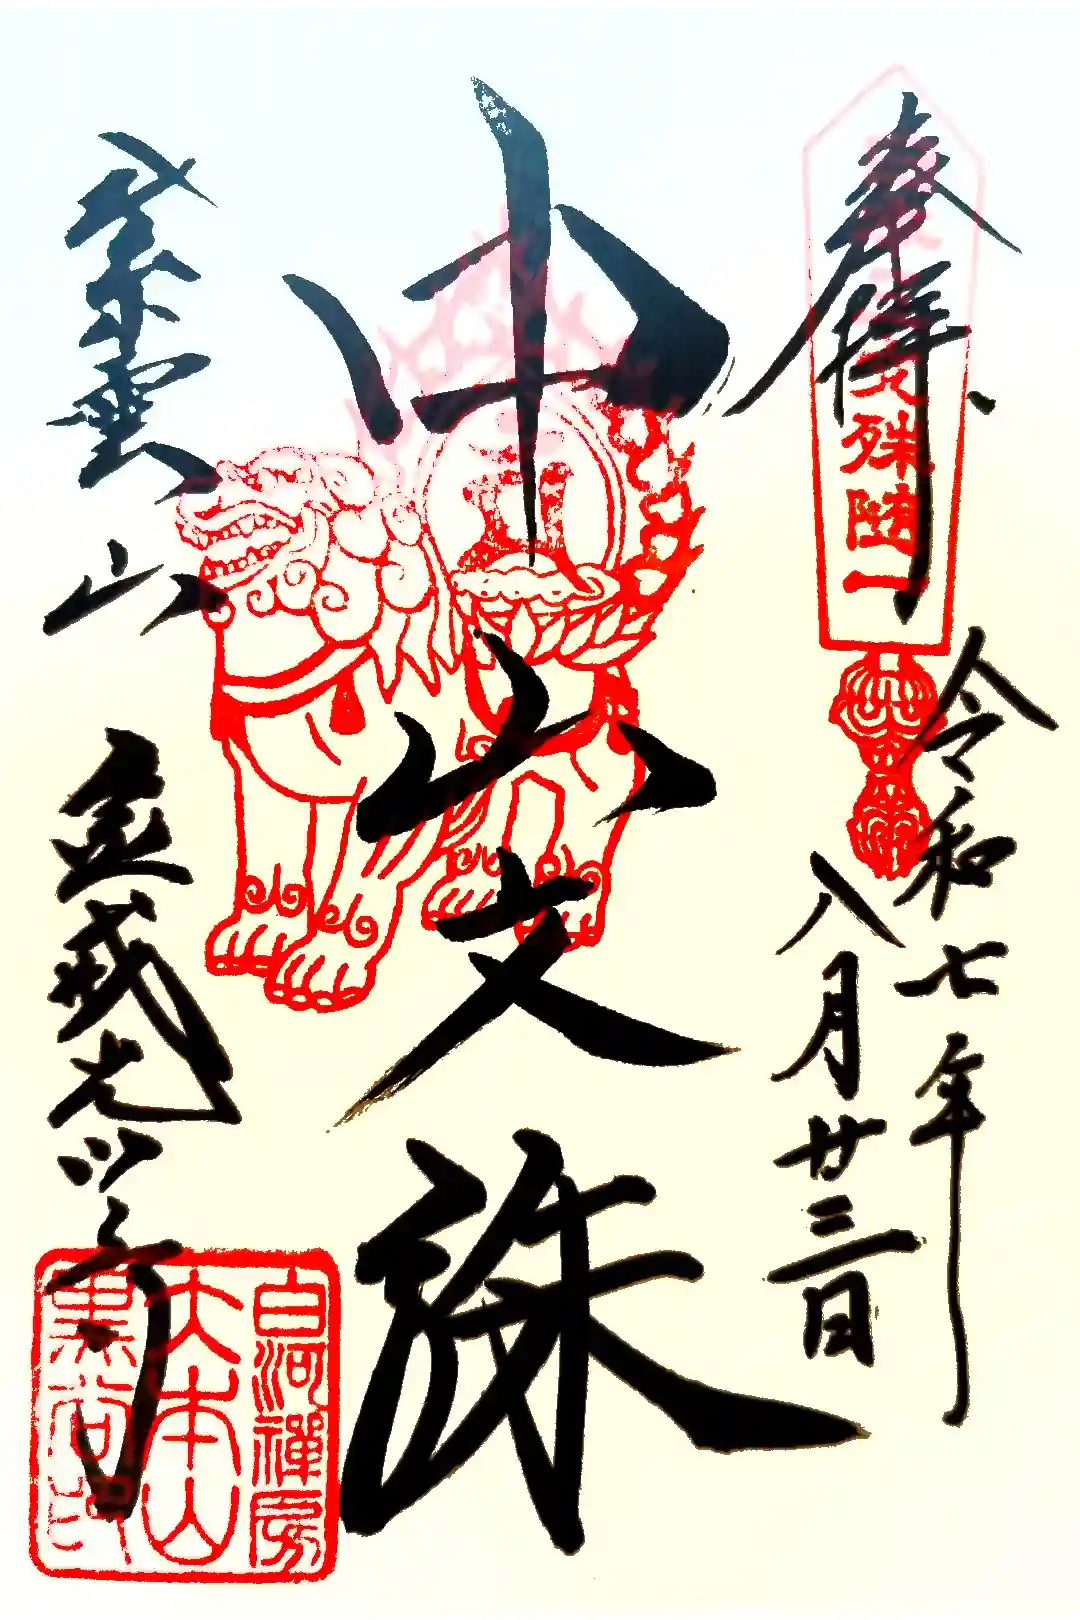 奉拝
文殊随一
令和七年
八月廿三日
中山文殊
紫雲山
金戒光明寺
白河禅房
大本山
黒谷